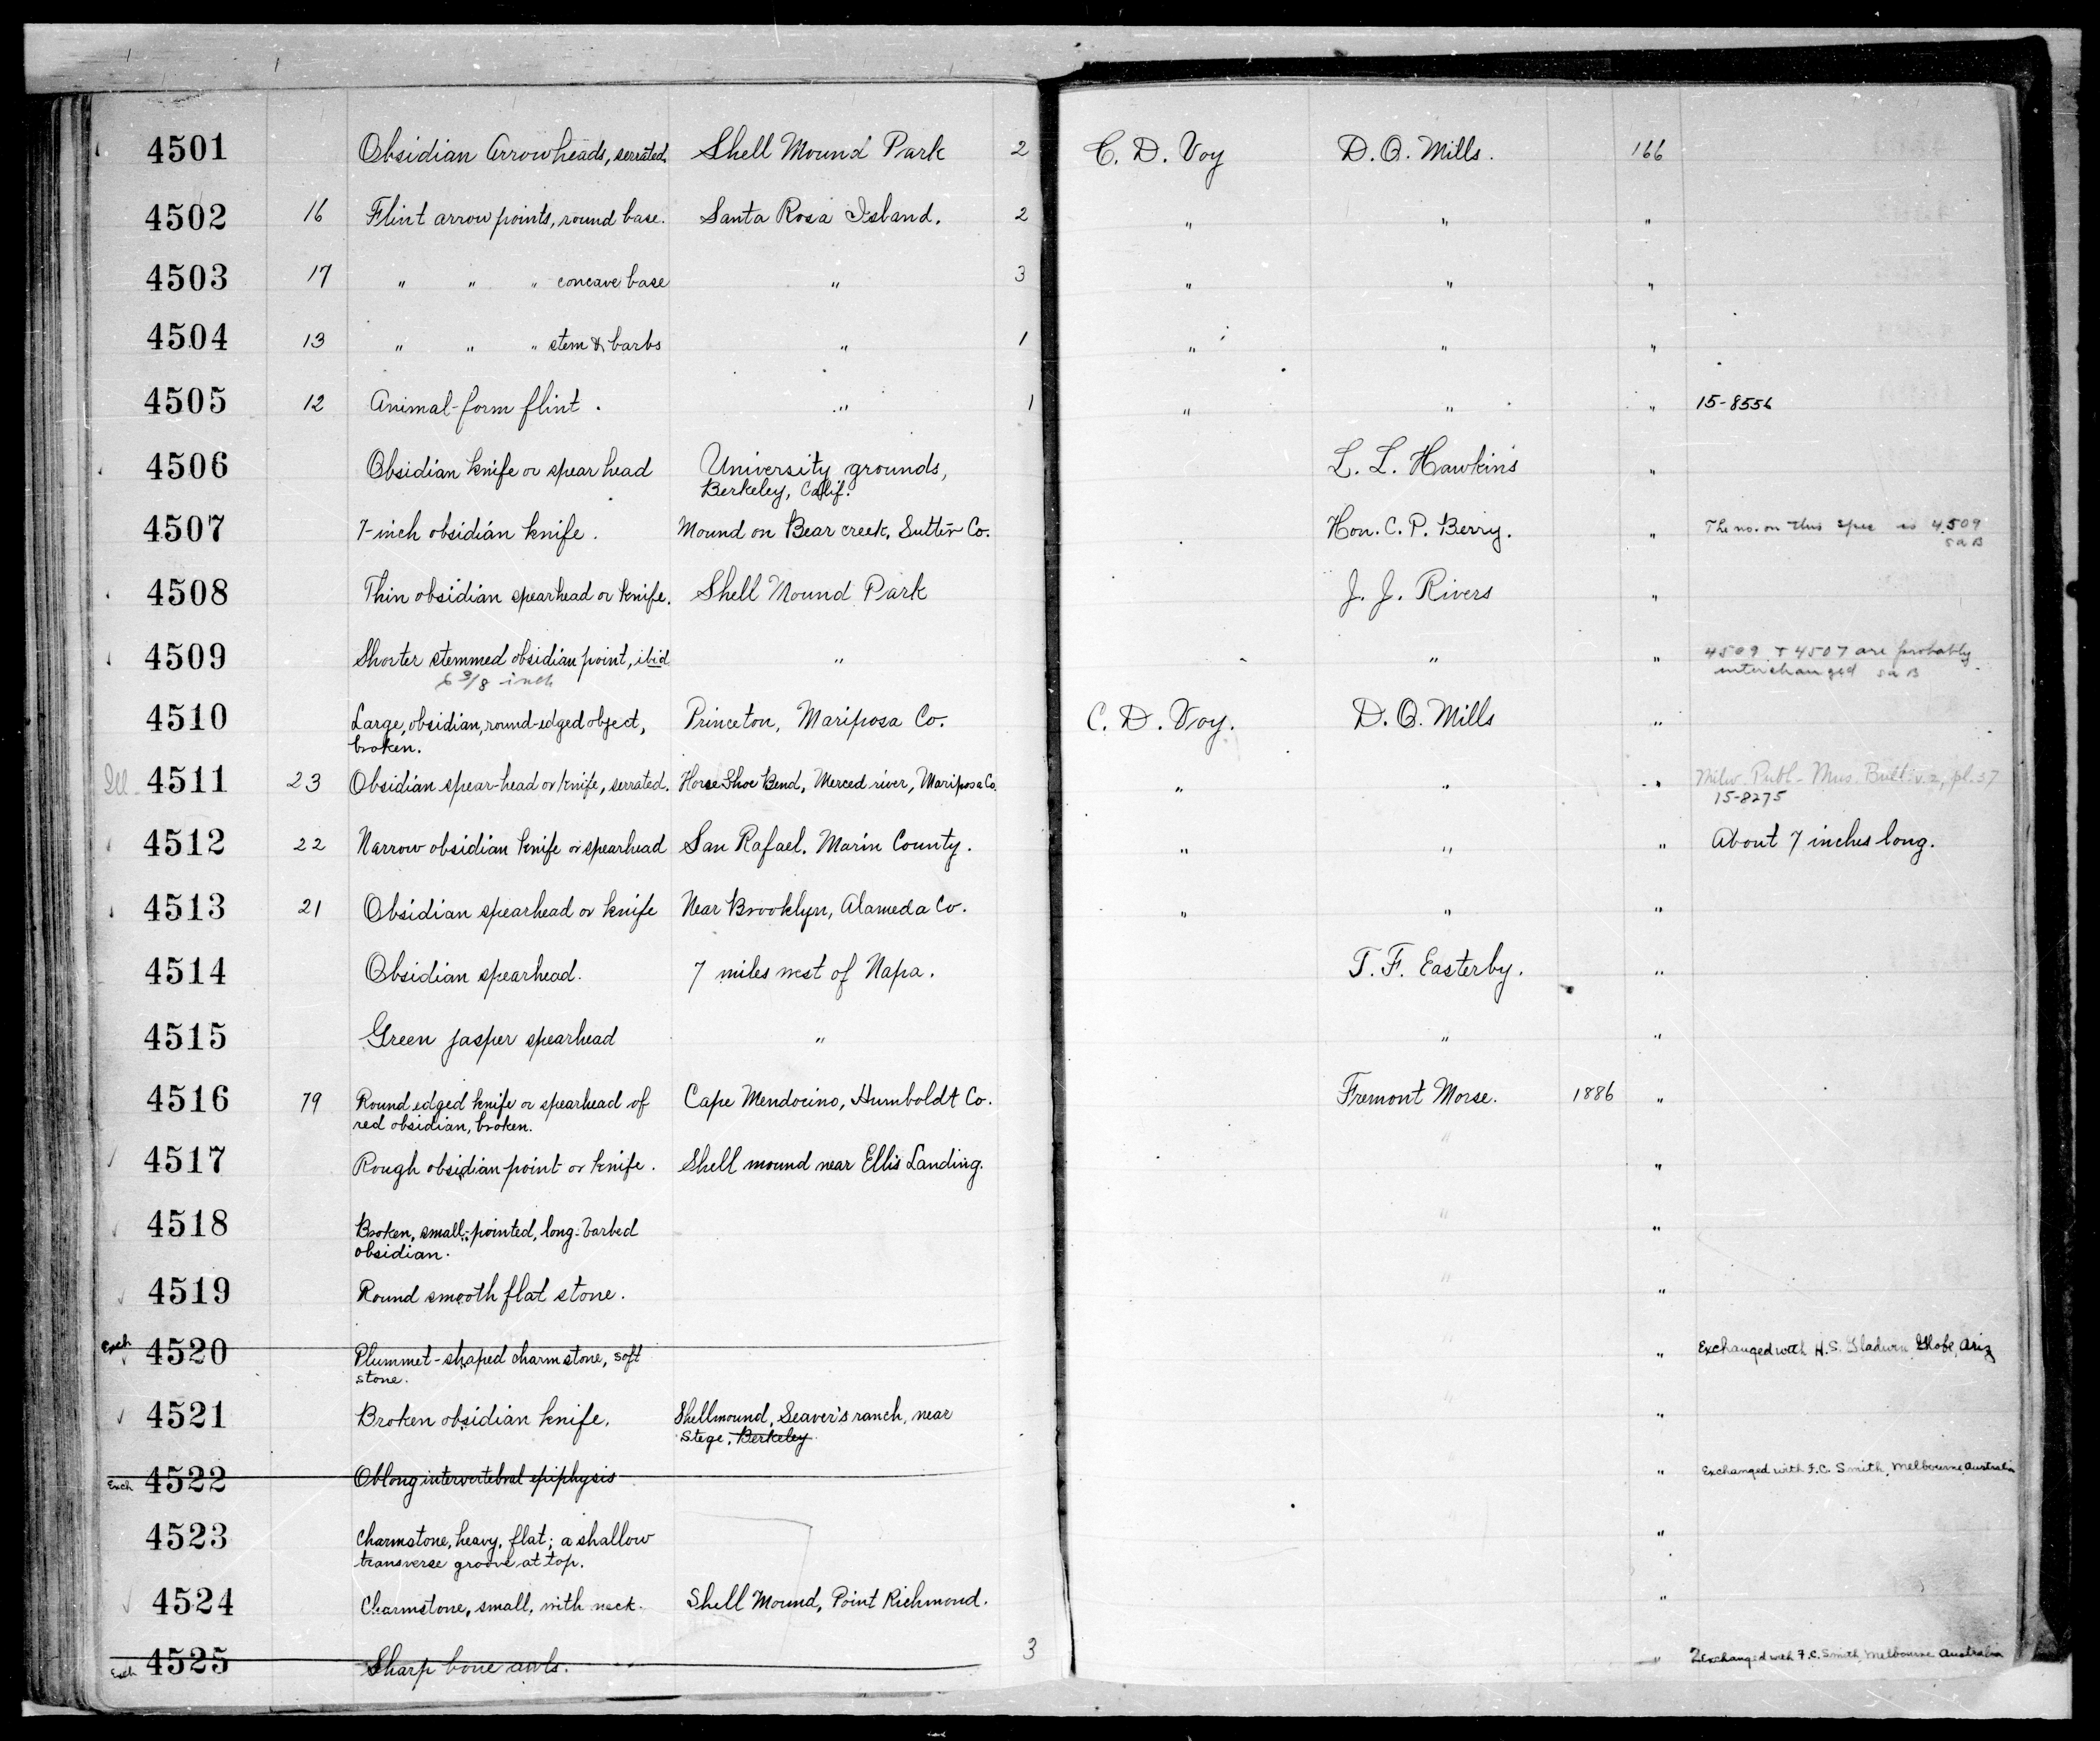 4501 Obsidian Arrowheads, serrated. Shell Mound Park 2 C. D. Voy D. O. Mills. 166
4502 16 Flint arrow points, round base. Santa Rosa Island. 2 " " "
4503 17 " " " concave base " 3 " " "
4504 13 " " " stem & barbs " 1 " " "
4505 12 Animal-form flint. " 1 " " " 15-8556
4506 Obsidian knife or spear head University grounds, L. L. Hawkins "
Berkeley, Calif.
4507 7-inch obsidian knife. Mound on Bear creek, Sutter Co. Hon. C. P. Berry. " The no. on this spec is 4509
SAB
4508 Thin obsidian spearhead or knife. Shell Mound Park J. J. Rivers "
4509 Shorter stemmed obsidian point, ibid " " " 4509 + 4507 are probably
6 3/8 inch interchanged SAB
4510 Large, obsidian, round-edged object, Princeton, Mariposa Co. C. D. Voy. D. O. Mills "
broken.
Ill. 4511 23 Obsidian spear-head or knife, serrated. Horse Shoe Bend, Merced river, Mariposa Co. " " " Milw. Publ. Mus. Bull. v.2, pl. 37
15-8275
4512 22 Narrow obsidian knife or spearhead San Rafael, Marin County. " " " About 7 inches long.
4513 21 Obsidian spearhead or knife Near Brooklyn, Alameda Co. " " "
4514 Obsidian spearhead. 7 miles west of Napa. T. F. Easterby. "
4515 Green jasper spearhead " " "
4516 79 Round edged knife or spearhead of Cape Mendocino, Humboldt Co. Fremont Morse. 1886 "
red obsidian, broken.
4517 Rough obsidian point or knife. Shell mound near Ellis Landing. " "
4518 Broken, small-pointed, long-barbed " "
obsidian.
4519 Round smooth flat stone. " "
Exch 4520 Plummet-shaped charmstone, soft " " Exchanged with H.S. Gladwin, Globe, Ariz
stone.
4521 Broken obsidian knife. Shellmound, Seaver's ranch, near " "
Stege, Berkeley
Exch 4522 Oblong intervertebral epiphysis " Exchanged with F.C. Smith, Melbourne Australia
4523 Charmstone, heavy, flat; a shallow "
transverse groove at top.
4524 Charmstone, small, with neck. Shell Mound, Point Richmond. "
Exch 4525 Sharp bone awls. 3 " 2 exchanged with F.C. Smith, Melbourne Australia